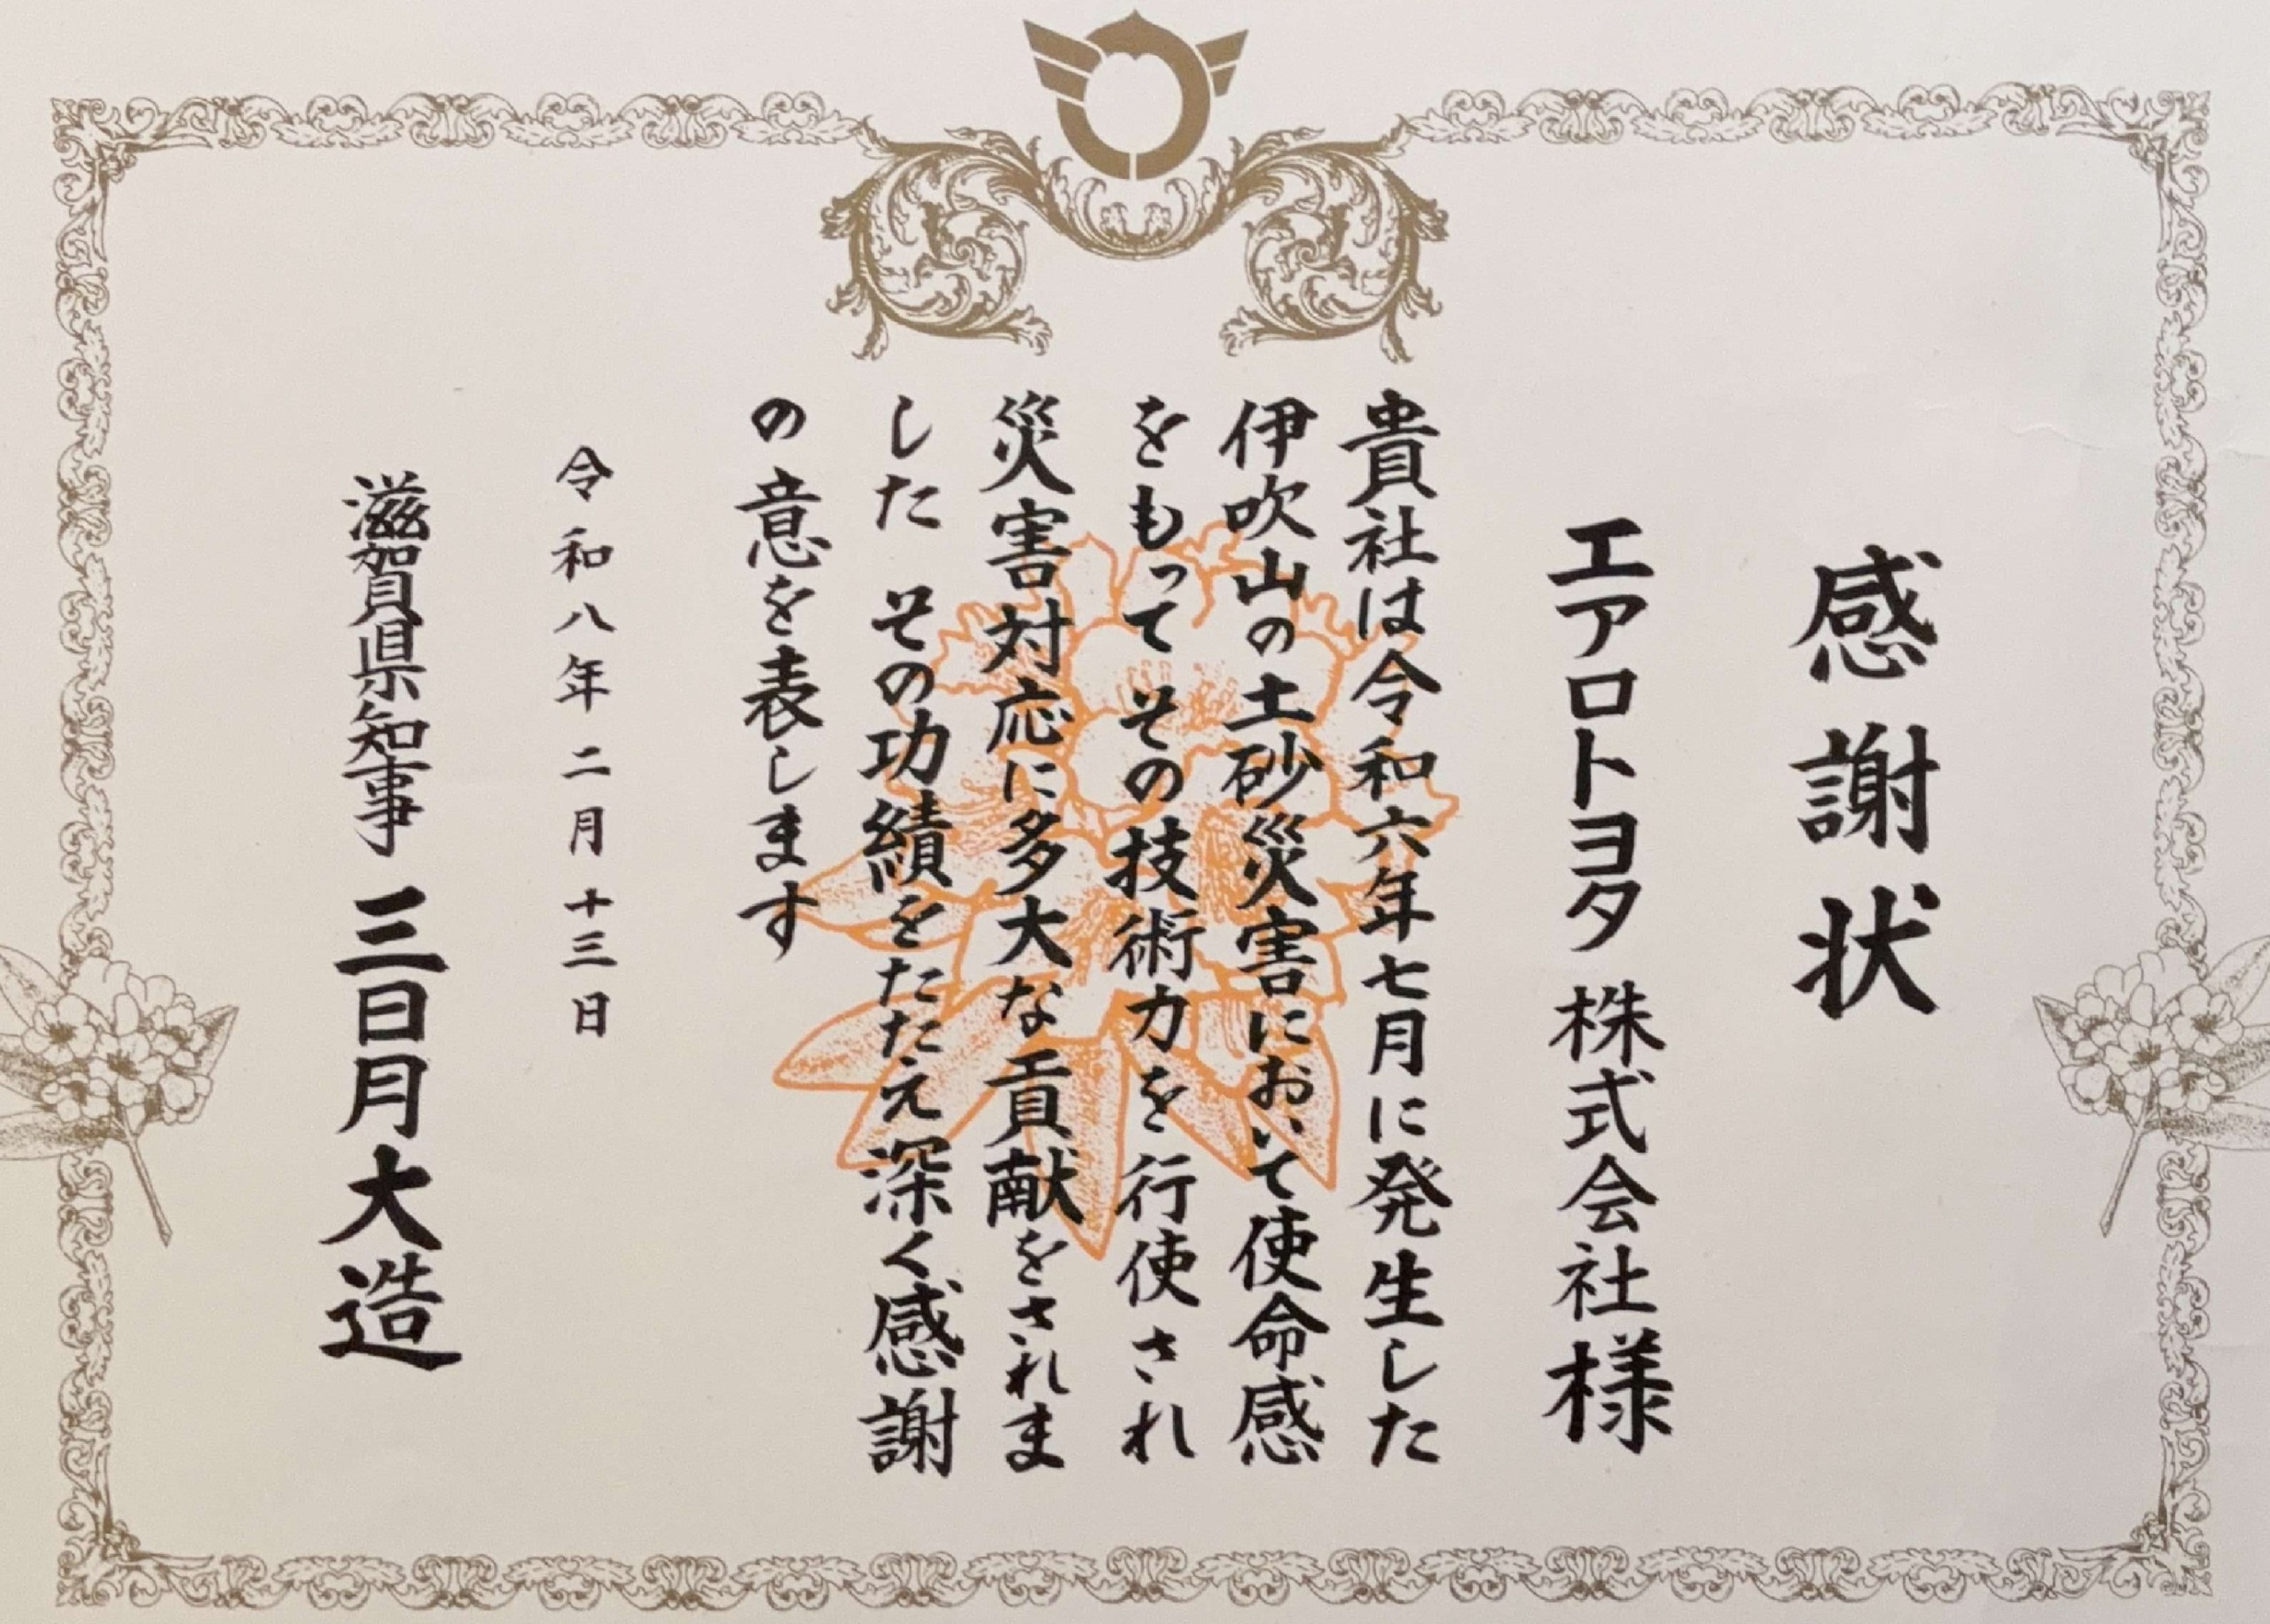 感謝状
エアロトヨタ 株式会社様
貴社は令和六年七月に発生した
伊吹山の土砂災害において使命感
をもって その技術力を行使され
災害対応に多大な貢献をされま
した その功績をたたえ深く感謝
の意を表します
令和八年二月十三日
滋賀県知事 三日月大造